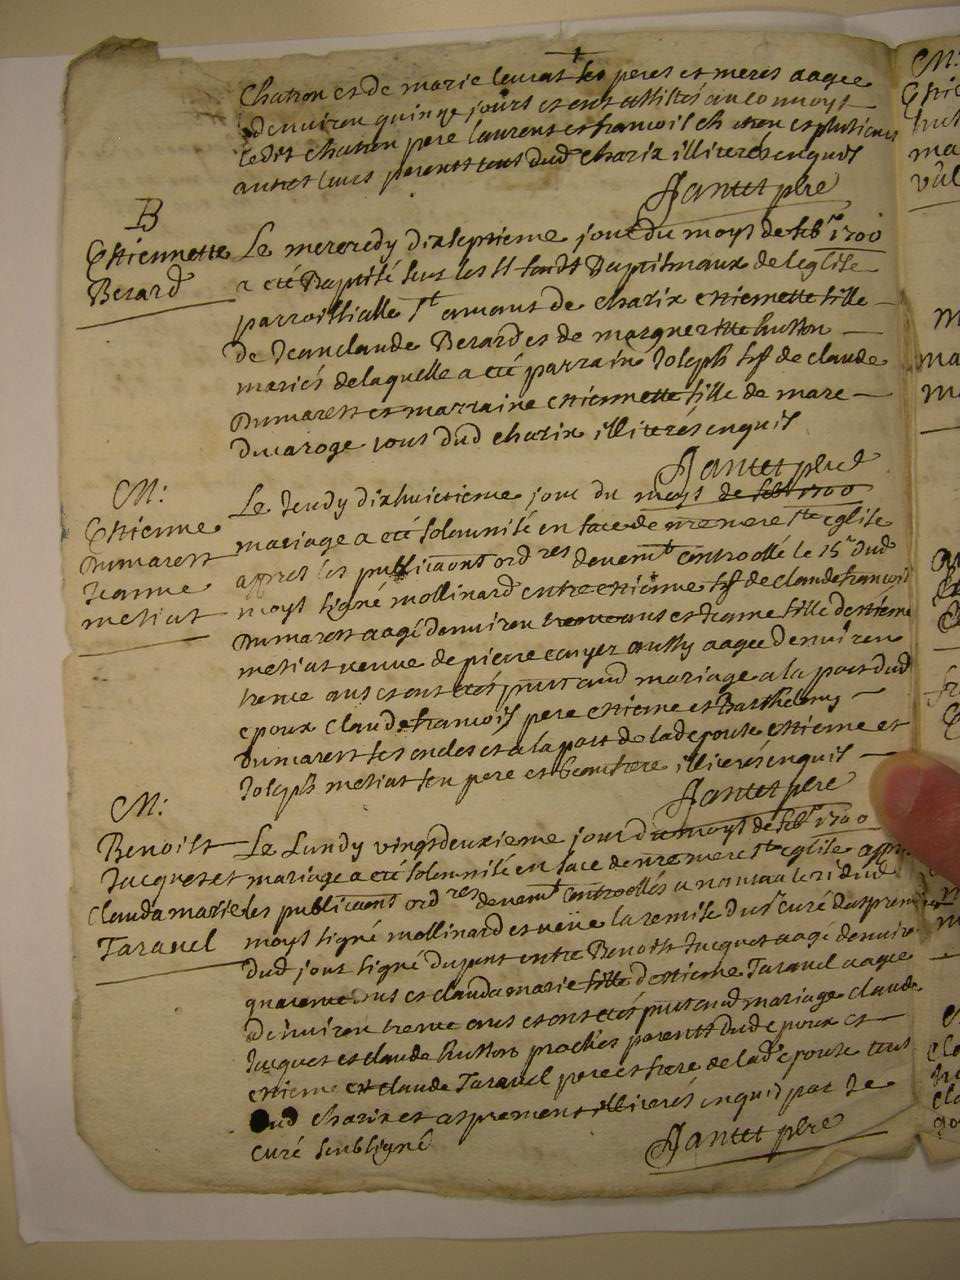 Chatron et de marie leurat ses peres et meres aagee
denviron quinze jours et ont assistes au convoys
ledit chatron pere laurent et francois chatron et plusieurs
autres leurs parents tous dud charix illiteres enquis
Jantet pbre
B
Estiennette
Berard
Le mercredy dixseptieme jour du moys de feb. 1700
a eté Baptisé sur les Sts fonds Baptismaux de leglise
parroissialle St amant de charix estiennette fille
de Jean claude Berard et de margueritte hutton
mariés de laquelle a eté parrain Joseph fils de claude
Dumarest et marraine estiennette fille de marc
Ducaroge tous dud charix illiterés enquis
Jantet pbre
M:
Estienne
Dumarest
Jeanne
metiat
Le Jeudy dixhuictieme jour du moys de feb. 1700
mariage a eté solemnisé en face de nre mere ste eglise
appres les publicaons ordres devemt controollé le 15e dud
moys signé mollinard entre estienne fils de claude francois
Dumarest aagé denviron trente ans et Jeanne fille destienne
metiat veuve de pierre aussy aagee denviron
trente ans et ont etés pnts aud mariage a la part dud
epoux claude francois pere estienne et Barthelemy
Dumarest ses oncles et a la part de lade epouse estienne et
Joseph metiat son pere et beau frere illiterés enquis
Jantet pbre
M:
Benoist
Jacquet et
Claudamarie
Taravel
Le Lundy vingtdeuxieme jour du moys de feb. 1700
mariage a eté solemnisé en face de nre mere ste eglise appres
les publicaons ordres devemt controollés a nantua le dud
moys signé mollinard et veüe la remise du sr curé daspremont
dud jour signé dupont entre Benoist Jacquet aagé denviron
quarente ans et claudamarie fille destienne Taravel aagee
denviron trente ans et ont etés pnts aud mariage claude
Jacquet et claude hutton proches parents dud epoux et
estienne et claude Taravel pere et frere de lade epouse tous
dud charix et aspremont illiterés enquis par Je
curé soubsigné
Jantet pbre